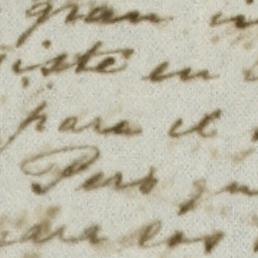 gran
iste en
para el
Pero
para los